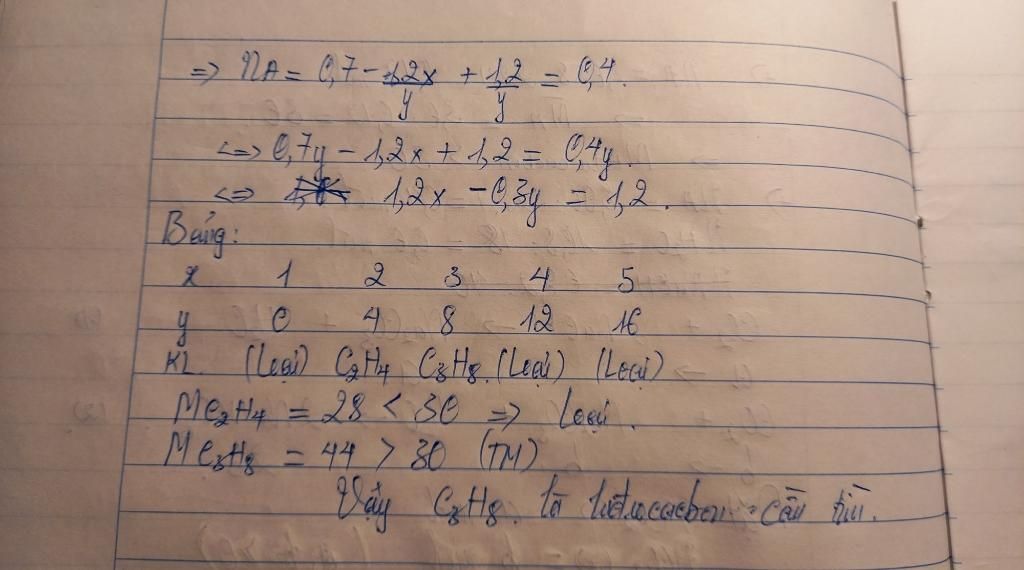 => nA = 0,7 - 1,2x/y + 1,2/y = 0,4.
<=> 0,7y - 1,2x + 1,2 = 0,4y.
<=> 1,2x - 0,3y = 1,2.
Bảng:
x 1 2 3 4 5
y 0 4 8 12 16
KL (Loại) C₂H₄ C₃H₈. (Loại) (Loại)
MC₂H₄ = 28 < 30 => Loại.
MC₃H₈ = 44 > 30 (TM)
Vậy C₃H₈. là hiđrocacbon cần tìm.